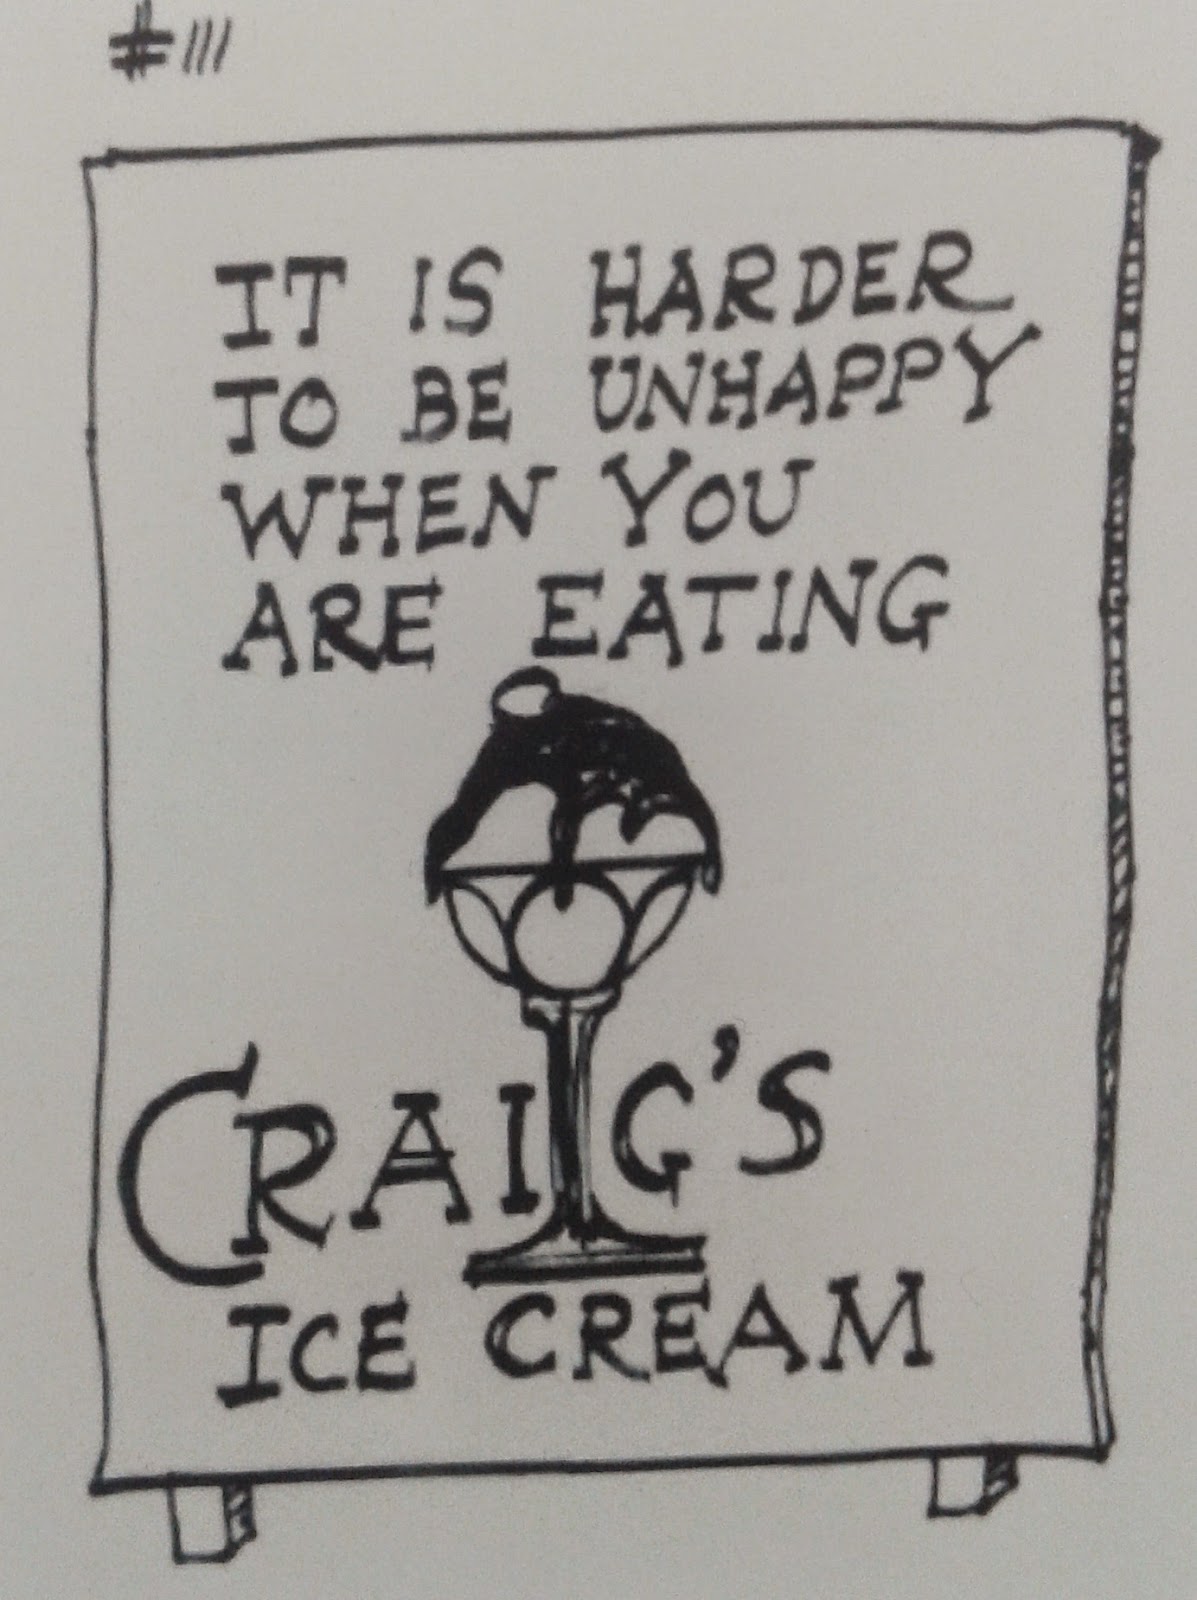 #111
IT IS HARDER
TO BE UNHAPPY
WHEN YOU
ARE EATING
CRAIG'S
ICE CREAM